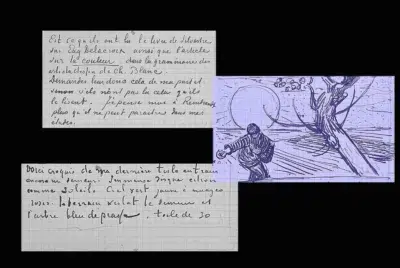 Est ce qu'ils ont lu le livre de Silvestre
sur Eug Delacroix ainsi que l'article
sur la couleur dans la grammaire des
arts du dessin de Ch. Blanc.
Demandez leur donc cela de ma part et
sinon s'ils n'ont pas lu cela qu'ils
le lisent. Je pense moi à Rembrandt
plus qu'il ne peut paraître dans mes
études.
Voici croquis de ma dernière toile en train
encore un semeur. Immense disque citron
comme soleil. Ciel vert jaune à nuages
roses. le terrain violet le semeur et
l'arbre bleu de prusse. toile de 30